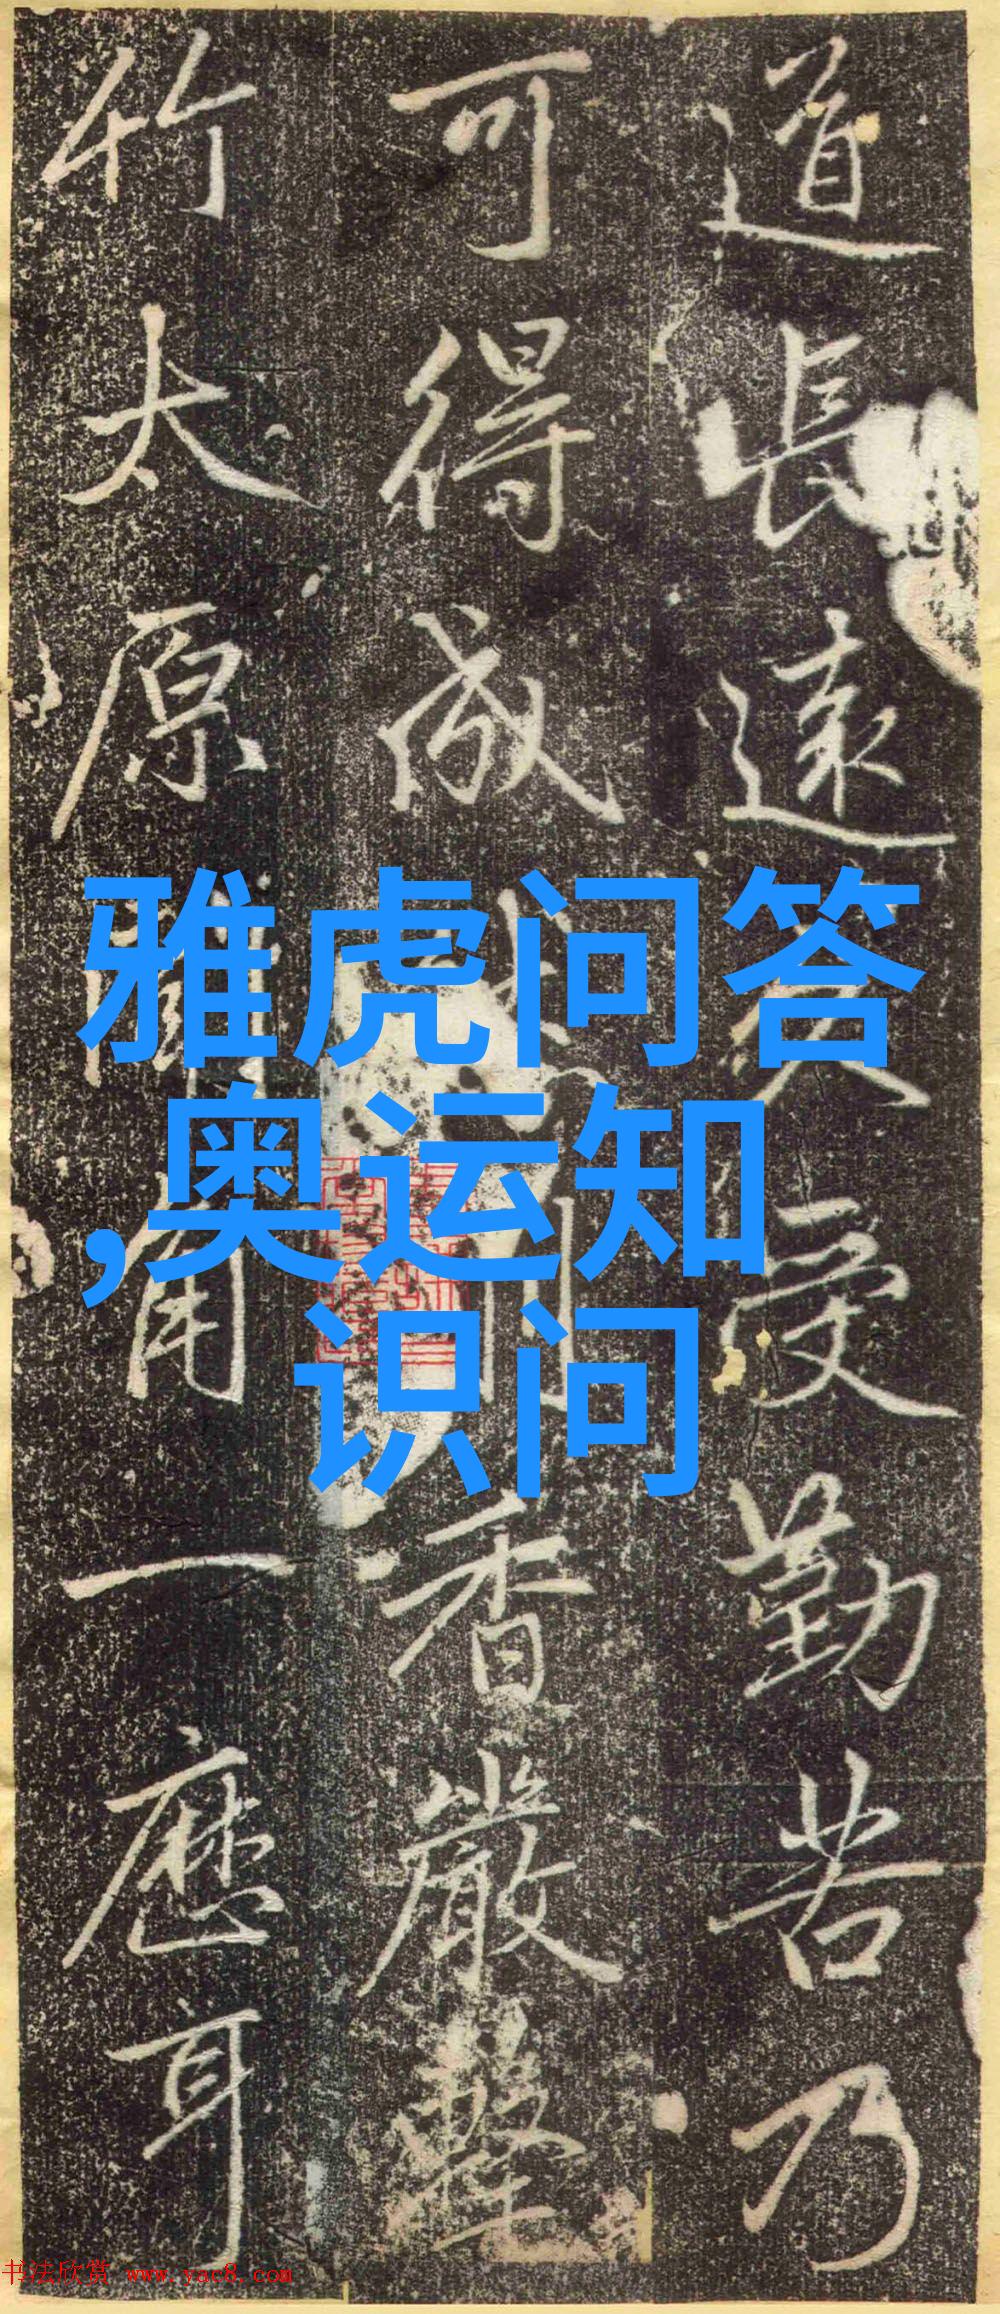 道長遠久受勤苦乃
可得成香嚴擊
竹太原聞角一歷耳
雅虎问答
,奥运知
识问
书法欣赏 www.yac8.com